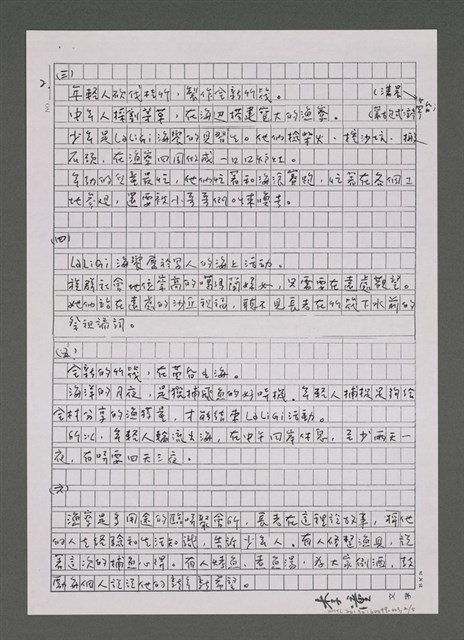 (三)
年輕人砍伐桂竹，製作全新竹筏。
中年人採割茅草，在海边搭建寬大的漁寮。
少年是LaLiGi海祭的見習生。他們撿柴火、挖沙坑、搬
石頭，在漁寮四周做成一口口炉灶。
年幼的儘是忙，他們忙著和海浪賽跑，忙著在各個工
地參觀，還需被小哥哥們叫來喚去。
(四)
LaLiGi海祭屬於男人的海上活动。
族群社會地位崇高的婦女，只需要在遠處觀望。
她們站在遠處的沙丘祝福，聽不見長老在竹筏下水前的
祭祖禱詞。
(五)
全新的竹筏，在黃昏出海。
海洋的月夜，是獵捕飛魚的好時機，年輕人捕捉足夠給
全村分享的漁獲量，才能結束LaLiGi活动。
所以，年輕人輪流出海，在中午回岸休息，至少兩天一
夜，有時需四天三夜。
(六)
漁寮是多用途的臨時聚會所，長老在這裡說故事，將他
的人生經驗和生活知識，告訴少年人。有人修整漁具，談
著這次的捕魚心得。有人烤魚、煮魚湯，為大家倒酒，鼓
勵每個人說說他的新年新希望。